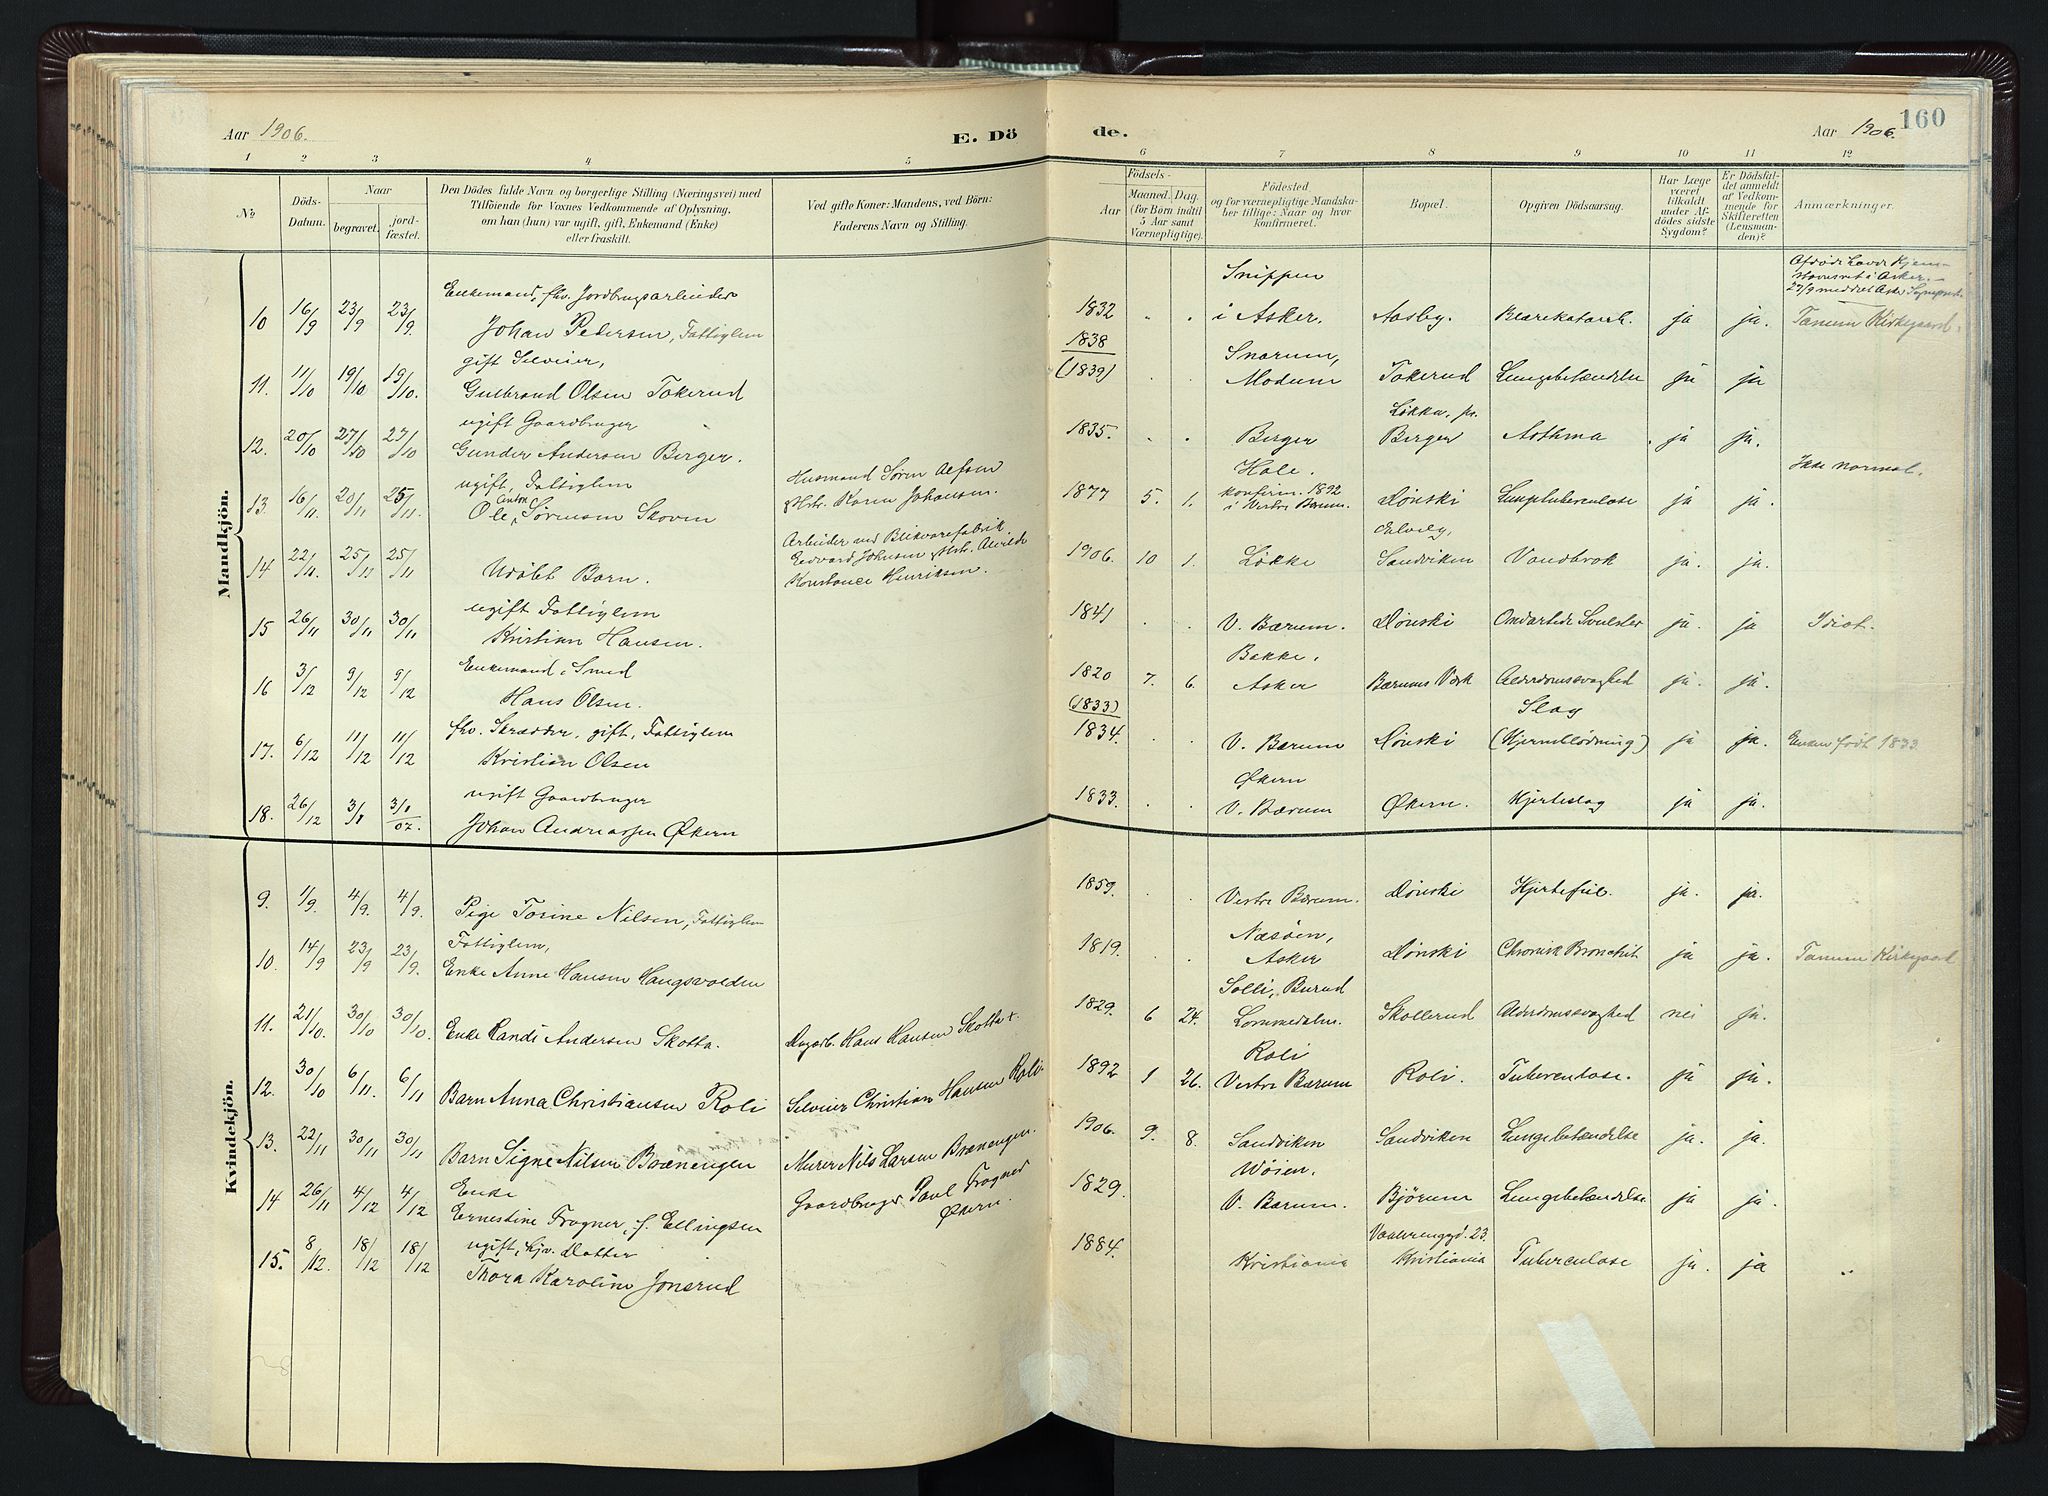 Aar 1906.
E. Dö
de.
Aar 1906.
160
1 2 3 4 5 6 7 8 9 10 11 12
№
Döds-Datum.
Naar
begravet.
jord-fæstet.
Den Dödes fulde Navn og borgerlige Stilling (Næringsvei) med
Tilföiende for Voxnes Vedkommende af Oplysning,
om han (hun) var ugift, gift, Enkemand (Enke)
eller fraskilt.
Ved gifte Koner: Mandens, ved Börn:
Faderens Navn og Stilling.
Födsels-
Aar
Maaned. Dag.
(for Börn indtil
5 Aar samt
Værnepligtige).
Födested
og for værnepligtige Mandska-
ber tillige: Naar og hvor
konfirmeret.
Bopæl.
Opgiven Dödsaarsag.
Har Læge
været
tilkaldt
under Af-
dödes sidste
Sygdom?
Er Dödsfal-
det anmeldt
af Vedkom-
mende for
Skifteretten
(Lensman-
den)?
Anmærkninger.
Mandkjön.
Enkemand, fhv. Jordbrugsarbeider Snippen
10 16/9 23/9 23/9. Johan Pedersen, Fattiglem 1832 i Asker. Aasby. Blærekatarrh. ja ja. Tanum Kirkegaard.
gift Selveier, 1838 Snarum,
11. 11/10 19/10 19/10. Gulbrand Olsen Tokerud (1839) Modum Tokerud Lungebetændelse ja ja
ugift Gaardbruger Løkka, pr.
12. 20/10 27/10 27/10 Gunder Andersen Berger. 1835. Berger Berger Asthma ja ja.
ugift, Fattiglem Husmand Søren Alfsen Hole. Ikke normal.
13. 16/11. 20/11 25/11. Ole Anton Sørensen Skoven Hstr. Karen Johansen. 1877 5. 1. konfirm. 1892 i Vestre Bærum. Dønski Lungetuberculose ja ja.
Arbeider ved Blikvarefabrik
Edvard Johnsen Hstr. Alvilde
14 22/11. 25/11 25/11 Udøbt Barn. Konstance Henriksen. 1906. 10 1. Løkke Sandviken Vandbrok ja. ja.
ugift Fattiglem
15 26/11 30/11 30/11 Kristian Hansen. 1841 V. Bærum. Dønski Ondartede Svulster ja. ja Idiot.
Enkemand, Smed Bakke,
16 3/12 9/12 9/12 Hans Olsen. 1820 7. 6. Asker Bærums Værk Alderdomssvaghed ja. ja.
fhv. Skrædder, gift, Fattiglem (1833) Slag
17. 6/12 11/12 11/12 Kristian Olsen 1834. V. Bærum Dønski (Hjerneblødning) ja ja. Enken født 1833
ugift Gaardbruger Økern
18. 26/12 3/1 3/1 07. Johan Andreassen Økern 1833. V. Bærum Økern. Hjerteslag ja ja.
Kvindekjön.
9. 1/9. 4/9. 4/9. Pige Tosine Nilsen, Fattiglem 1859. Vestre Bærum. Dønski Hjertefeil. ja. ja.
Fattiglem, Næsøen,
10. 14/9 23/9 23/9. Enke Anne Hansen Haugsvolden 1819. Asker Dønski Chronisk Bronchit ja ja. Tanum Kirkegaard
Solli, Burud
11. 21/10. 30/10 30/10. Enke Randi Andersen Skotta. Dagarb. Hans Hansen Skotta +. 1829. 6 24. Lommedalen. Skollerud Alderdomssvaghed nei ja.
Roli
12. 30/10 6/11. 6/11 Barn Anna Christiansen Roli Selveier Christian Hansen Roli. 1892 1 26. Vestre Bærum Roli. Tuberculose. ja ja.
13. 22/11 30/11 30/11 Barn Signe Nilsen Brænengen Murer Nils Larsen Brænengen. 1906. 9. 8. Sandviken Sandviken Lungebetændelse ja. ja.
Enke Wøien.
14 26/11 4/12 4/12 Ernestine Frogner, f. Ellingsen Gaardbruger Paul Frogner Økern. 1829. V. Bærum. Bjørum Lungebetændelse ja ja.
ugift, hjv. Datter Vaalerenggd. 23.
15. 8/12. 18/12 18/12 Thora Karoline Jonsrud 1884. Kristiania Kristiania Tuberculose ja. ja